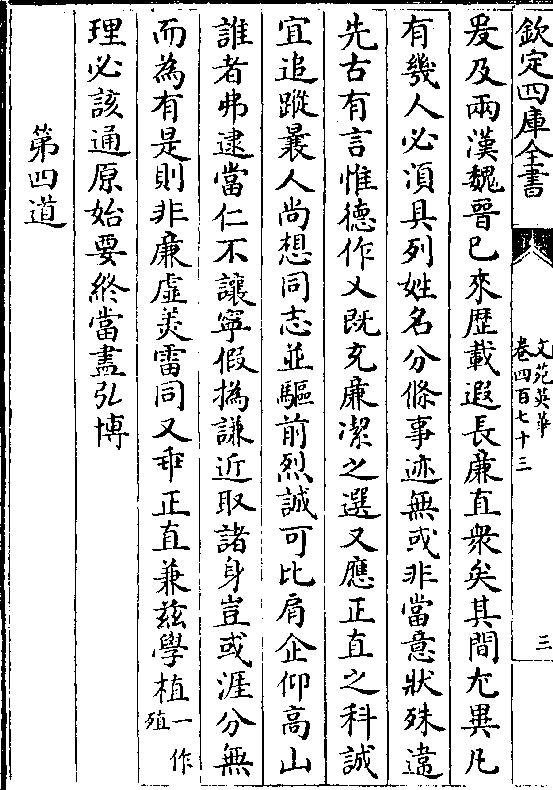 欽定四庫全書
文苑英華
卷四百七十三
三
爰及兩漢魏晉已來歴載遐長廉直衆矣其間尤異凡
有幾人必湏具列姓名分條事迹無或非當意狀殊違
先古有言惟德作乂既充廉潔之選又應正直之科誠
宜追蹤曩人尚想同志並驅前烈誠可比肩企仰高山
誰者弗逮當仁不讓寧假撝謙近取諸身豈或涯分無
而為有是則非廉虚美雷同又乖正直兼兹學植一作殖
理必該通原始要終當盡弘博
第四道